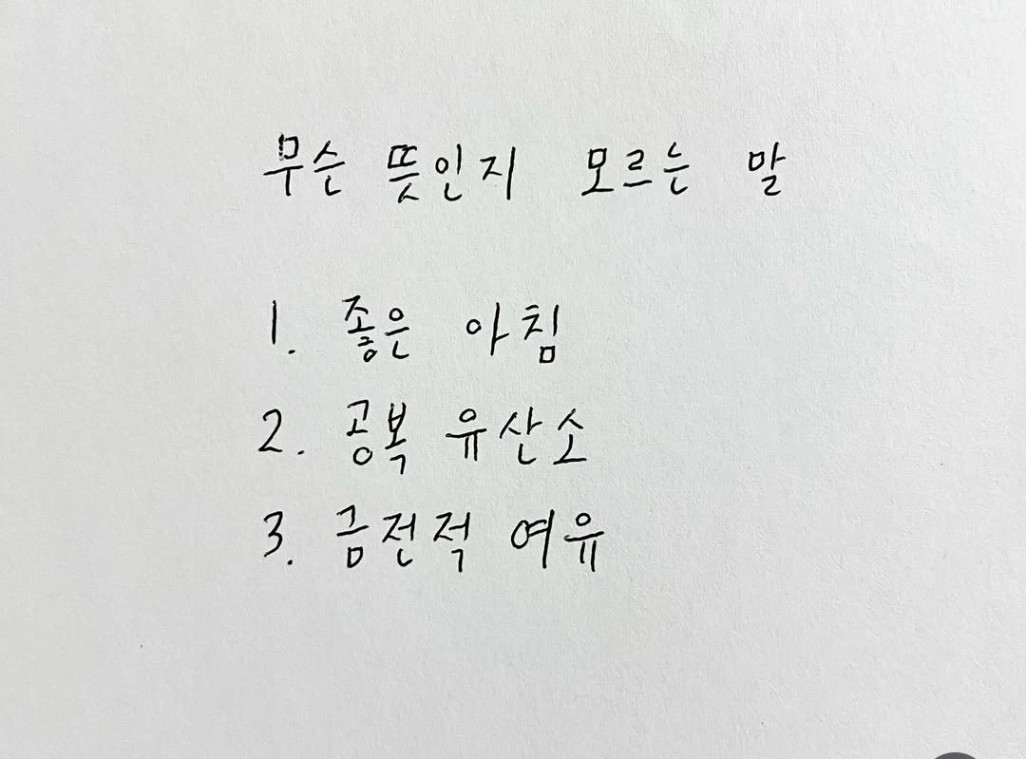 무슨 뜻인지 모르는 말
1. 좋은 아침
2. 공복 유산소
3. 금전적 여유